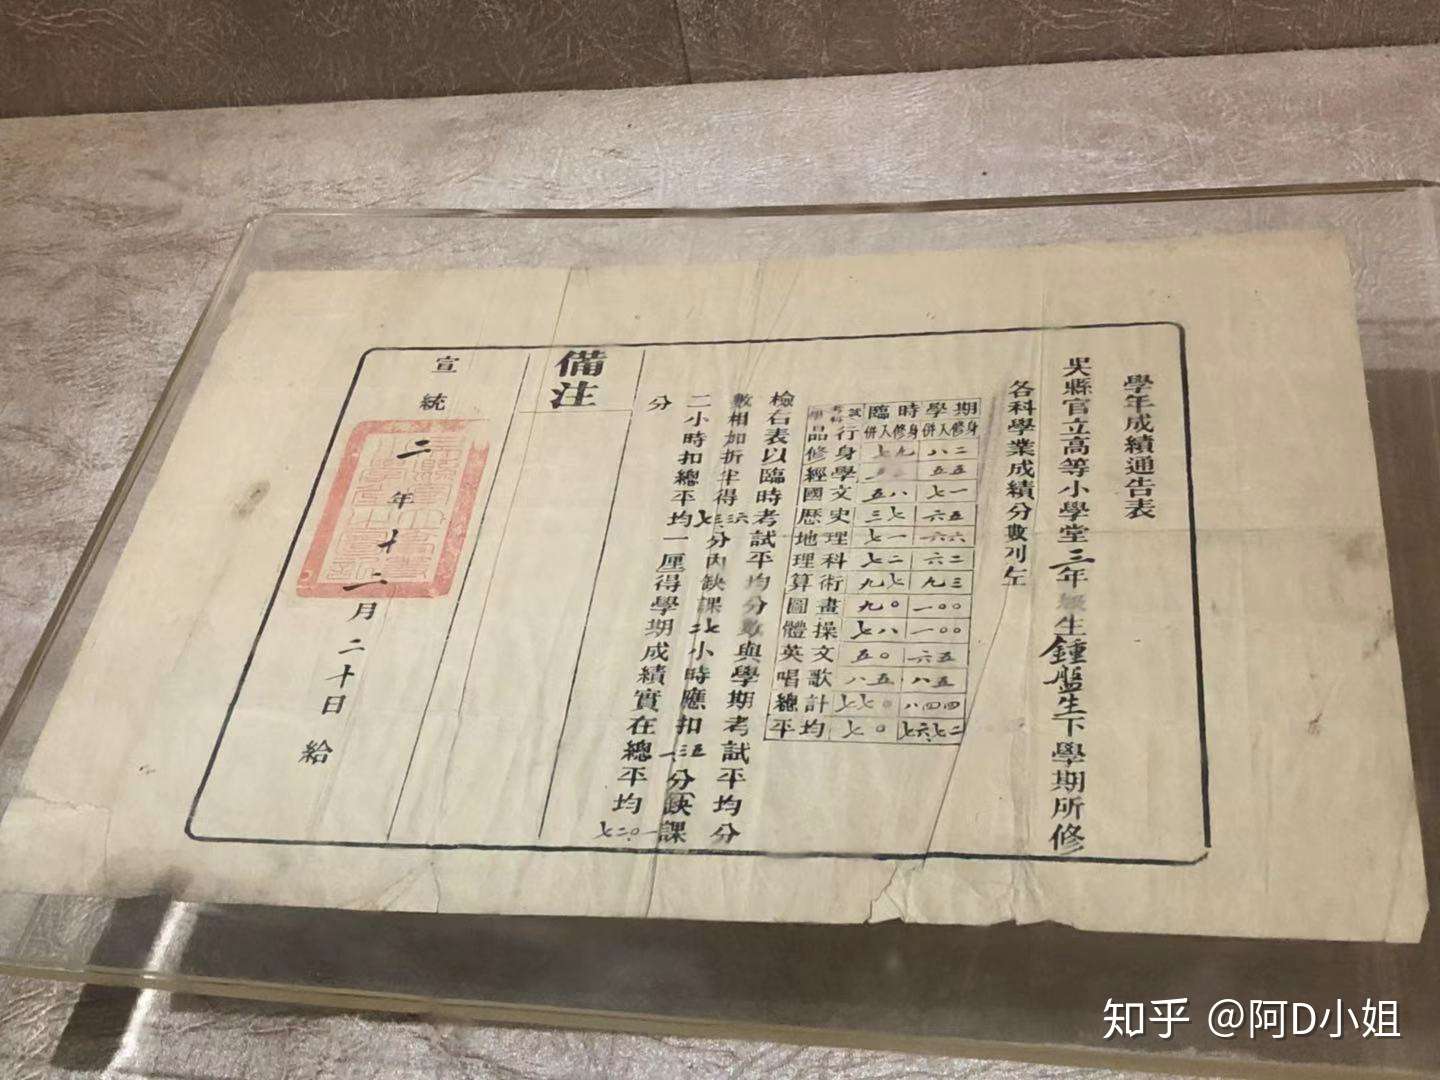 學年成績通告表
吳縣官立高等小學堂三年級生鍾盤生下學期所修
各科學業成績分數列左
學科 考試 臨時 學期
品行 併入修身 併入修身
修身 七九 八二
經學 五五
國文 五八 七一
歷史 三七 六五
地理 七一 六六
理科 七二 六二
算術 九七 九三
圖畫 九〇 一〇〇
體操 七八 一〇〇
英文 五〇 六五
唱歌 八五 八五
總計 七七〇 八四四
平均 七〇 七六.七二
檢右表以臨時考試平均分數與學期考試平均分
數相加折半得七三.三六分內缺課二七小時應扣一.三五分(缺課
二小時扣總平均一厘得學期成績實在總平均七二.〇一
分
備注
宣統二年十二月二十日給
知乎 @阿D小姐